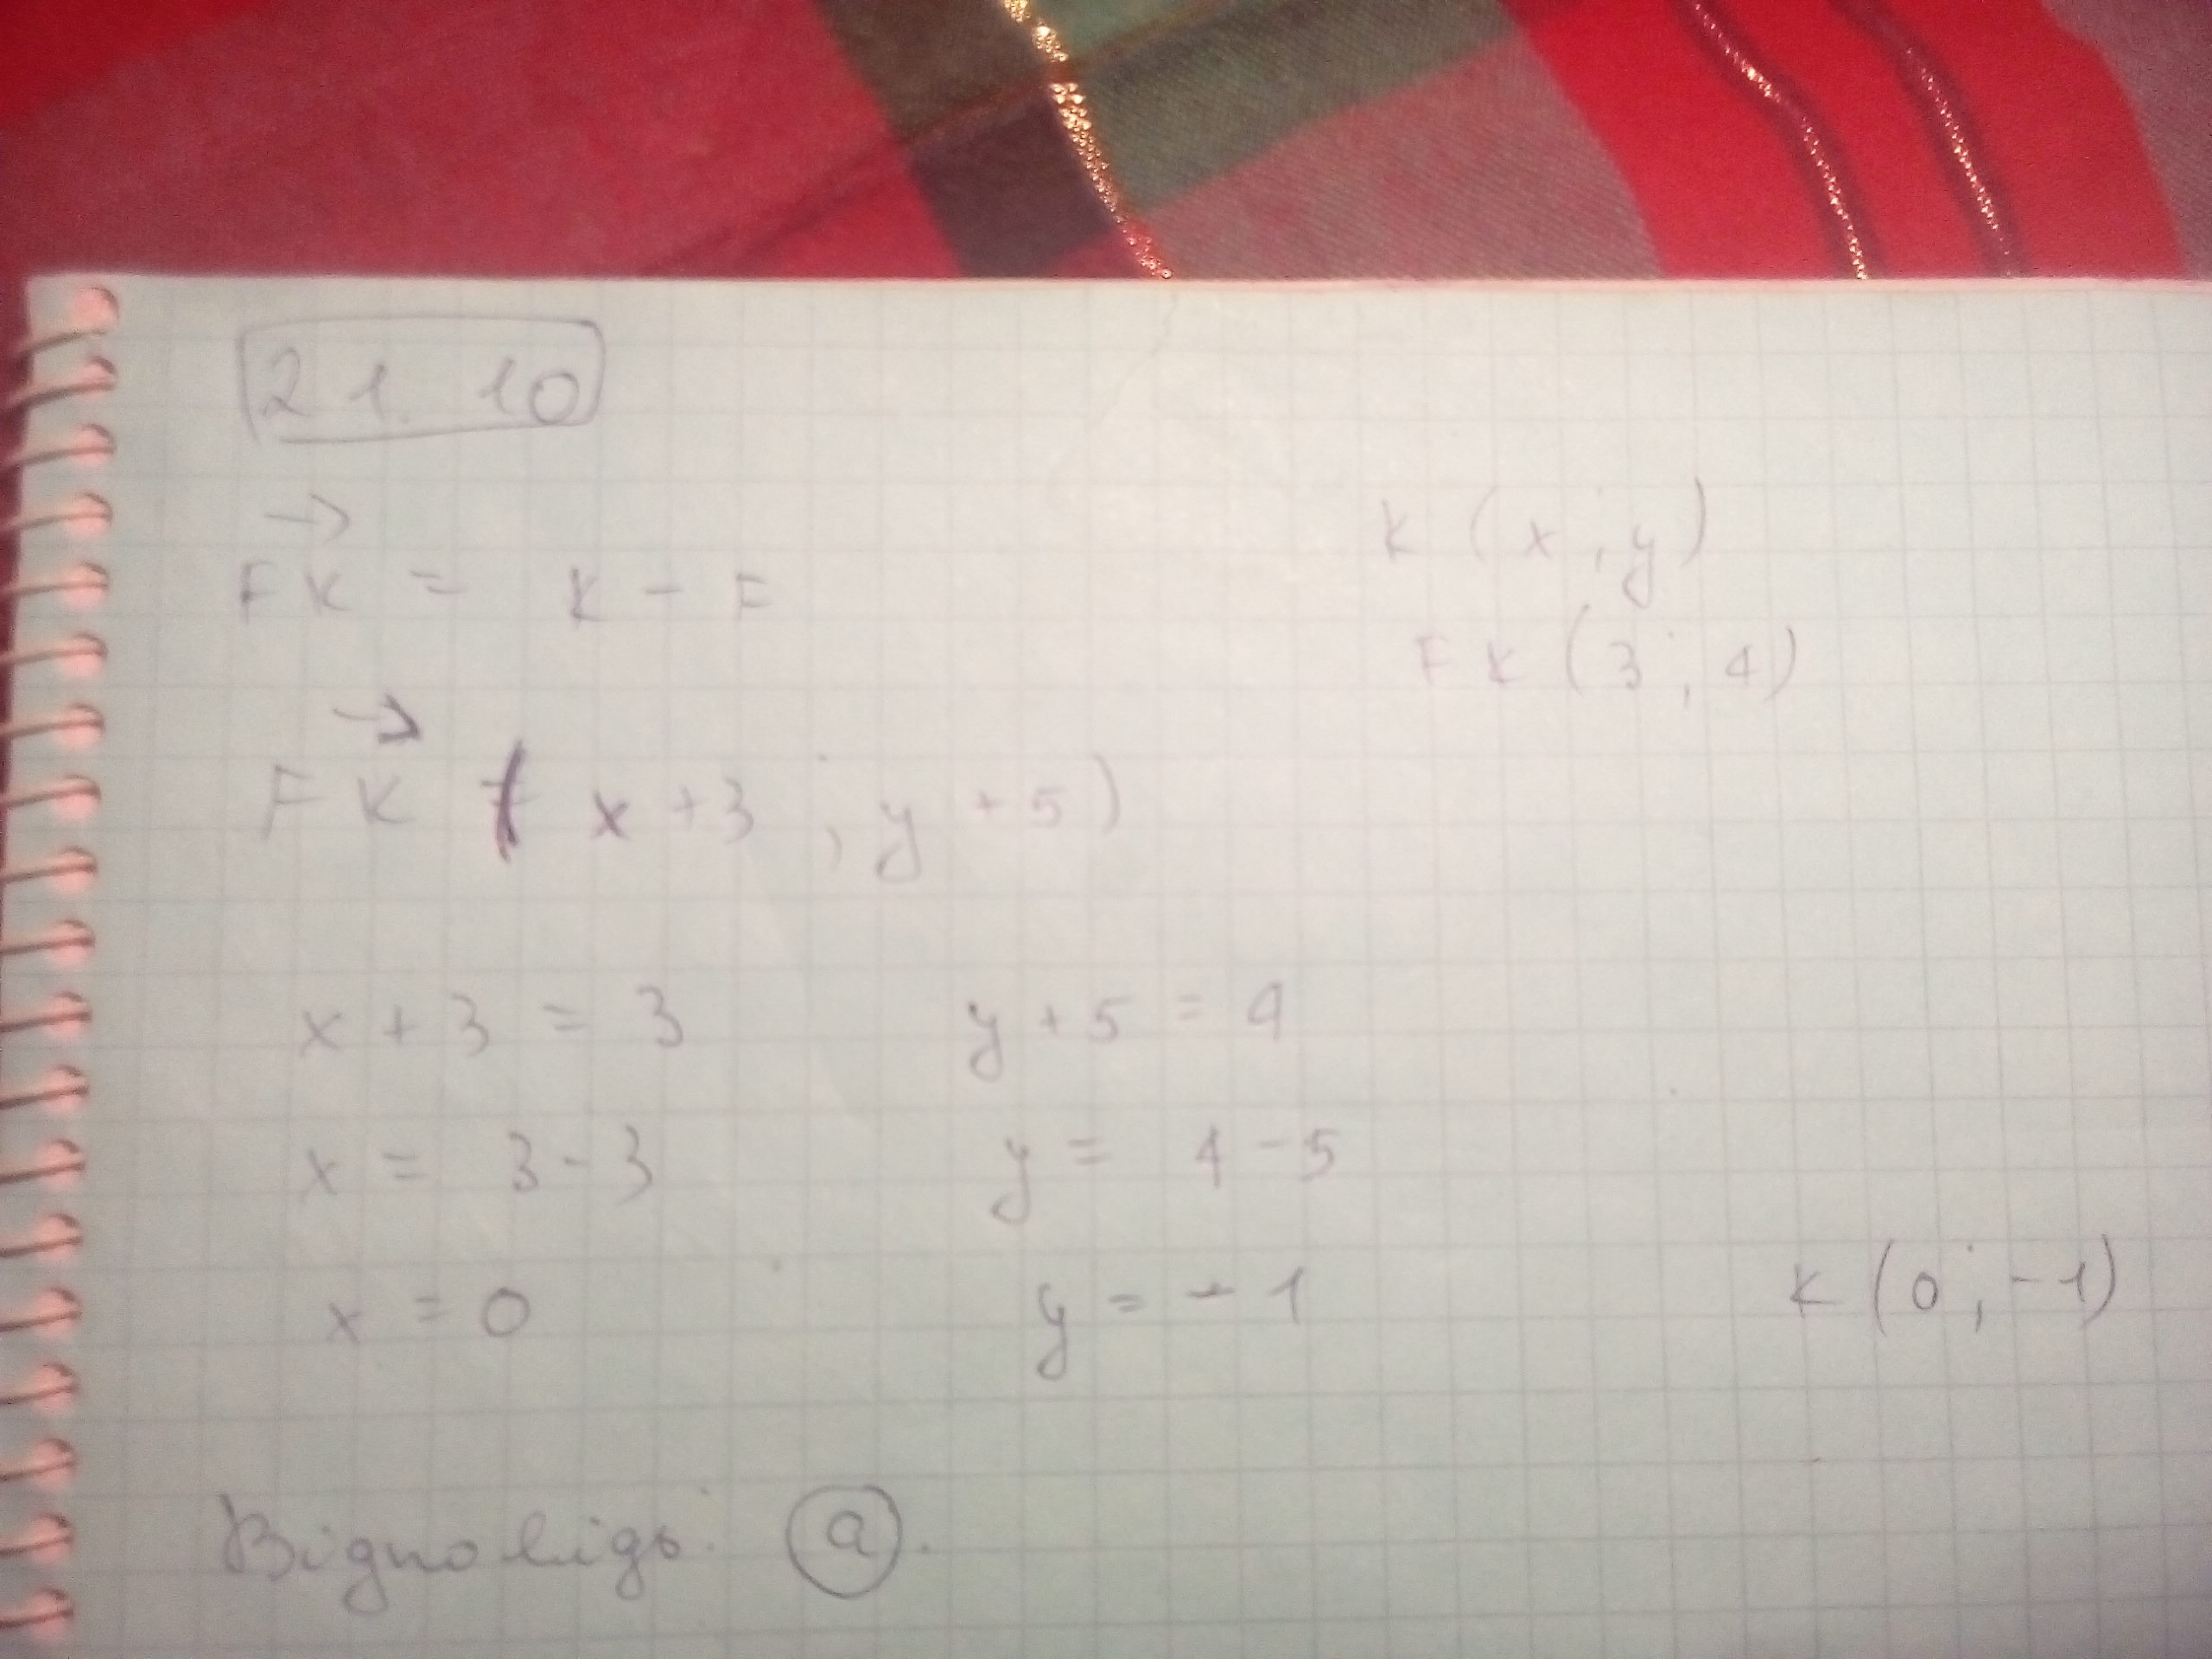 21.10
K (x; y)
→
FK = K - F
FK (3; 4)
→
FK ( x + 3 ; y + 5)
x + 3 = 3 y + 5 = 4
x = 3 - 3 y = 4 - 5
x = 0 y = - 1 K (0; -1)
Відповідь: а.